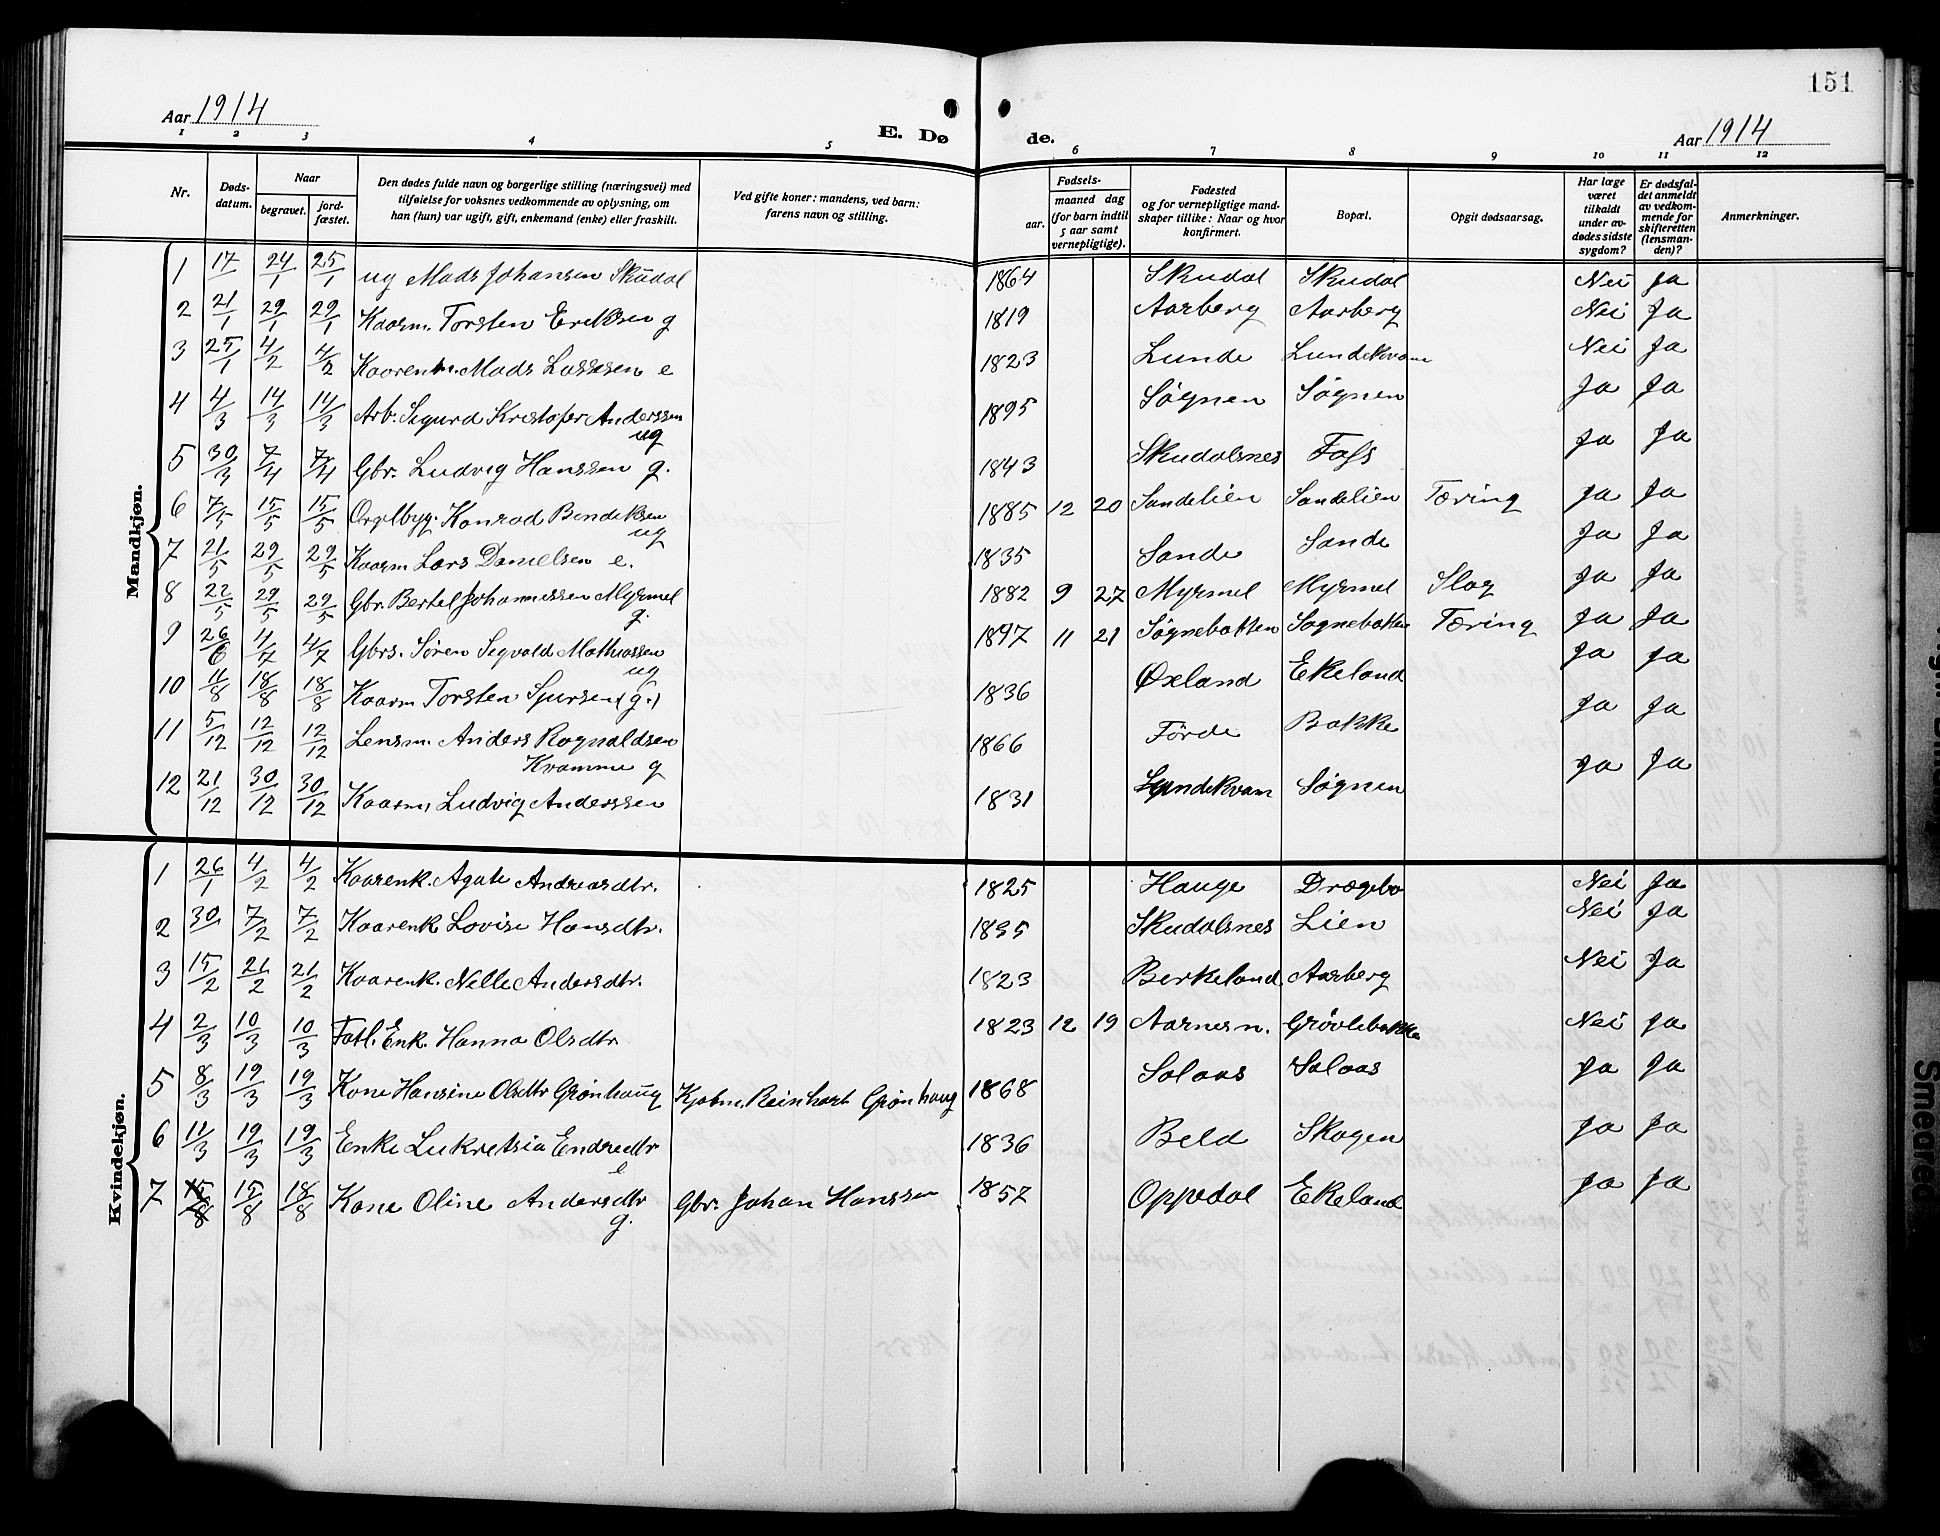 151
Aar 1914
E. Døde.
Aar 1914
1 2 3 4 5 6 7 8 9 10 11 12
Nr.
Døds-datum.
Naar
begravet.
jord-fæstet.
Den dødes fulde navn og borgerlige stilling (næringsvei) med
tilføielse for voksnes vedkommende av oplysning, om
han (hun) var ugift, gift, enkemand (enke) eller fraskilt.
Ved gifte koner: mandens, ved barn:
farens navn og stilling.
Fødsels-
aar.
maaned dag
(for barn indtil
5 aar samt
vernepligtige).
Fødested
og for vernepligtige mand-
skaper tillike: Naar og hvor
konfirmert.
Bopæl.
Opgit dødsaarsag.
Har læge
været
tilkaldt
under av-
dødes sidste
sygdom?
Er dødsfal-
det anmeldt
av vedkom-
mende for
skifteretten
(lensman-
den)?
Anmerkninger.
Mandkjøn.
1 17/1 24/1 25/1 ug Mads Johansen Skudal 1864 Skudal Skudal Nei Ja
2 21/1 29/1 29/1 Kaarm. Torsten Eriksen g 1819 Aarberg Aarberg Nei Ja
3 25/1 4/2 4/2 Kaarenkm. Mads Lassesen e 1823 Lunde Lundekvam Nei Ja
4 4/3 14/3 14/3 Arb. Sigurd Kristofer Anderssen ug 1895 Søgnen Søgnen Ja Ja
5 30/3 7/4 7/4 Gbr. Ludvig Hanssen g. 1843 Skudalsnes Foss Ja Ja
6 7/5 15/5 15/5 Orglbyg. Konrad Bendiksen ug 1885 12 20 Sandelien Sandelien Tæring Ja Ja
7 21/5 29/5 29/5 Kaarm Lars Danielsen e. 1835 Sande Sande Ja Ja
8 22/5 29/5 29/5 Gbr. Bertel Johannessen Myrmel g. 1882 9 27 Myrmel Myrmel Slag Ja Ja
9 26/6 4/7 4/7 Gbrs. Søren Sigvald Mathiassen ug 1897 11 21 Søgnebakken Søgnebakken Tæring Ja Ja
10 11/8 18/8 18/8 Kaarm Torsten Sjursen (g.) 1836 Oxland Ekeland Ja Ja
11 5/12 12/12 12/12 Lensm. Anders Rognaldsen Kvamme g 1866 Førde Bakke Ja Ja
12 21/12 30/12 30/12 Kaarm. Ludvig Anderssen 1831 Lundekvam Søgnen Ja Ja
Kvindekjøn.
1 26/1 4/2 4/2 Kaarenk. Agate Andreasdtr. 1825 Hauge Drægebø Nei Ja
2 30/1 7/2 7/2 Kaarenk Lovise Hansdtr. 1835 Skudalsnes Lien Nei Ja
3 15/2 21/2 21/2 Kaarenk. Nille Andersdtr. 1823 Berkeland Aarberg Nei Ja
4 2/3 10/3 10/3 Fatl. Enk. Hanna Olsdtr e 1823 12 19 Aarnesn. Grøvlebakke Nei Ja
5 8/3 19/3 19/3 Kone Hansine Olsdtr Grønhaug Kjøbm. Reinhart Grønhaug 1868 Solaas Solaas Ja Ja
6 11/3 19/3 19/3 Enke Lukretsia Endredtr e 1836 Beld Skogen Ja Ja
7 15/8 18/8 Kone Oline Andersdtr g. Gbr. Johan Hanssen 1857 Oppedal Ekeland Ja Ja
Smedrec